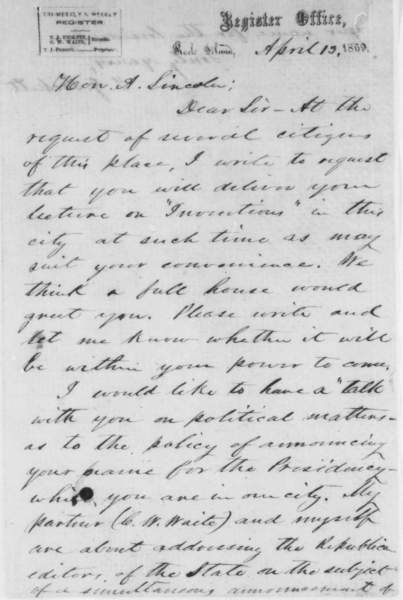 TRI-WEEKLY & WEEKLY
REGISTER
Register Office,
Rock Island, April 13, 1859.
Hon. A. Lincoln;
Dear Sir - At the
request of several citizens
of this place, I write to request
that you will deliver your
lecture on "Inventions" in this
city at such time as may
suit your convenience. We
think a full house would
greet you. Please write and
let me know whether it will
be within your power to come.
I would like to have a "talk
with you on political matters -
as to the policy of announcing
your name for the Presidency -
while you are in our city. My
partner (C. W. Waite) and myself
are about addressing the Republican
editors of the State on the subject
of a simultaneous announcement of